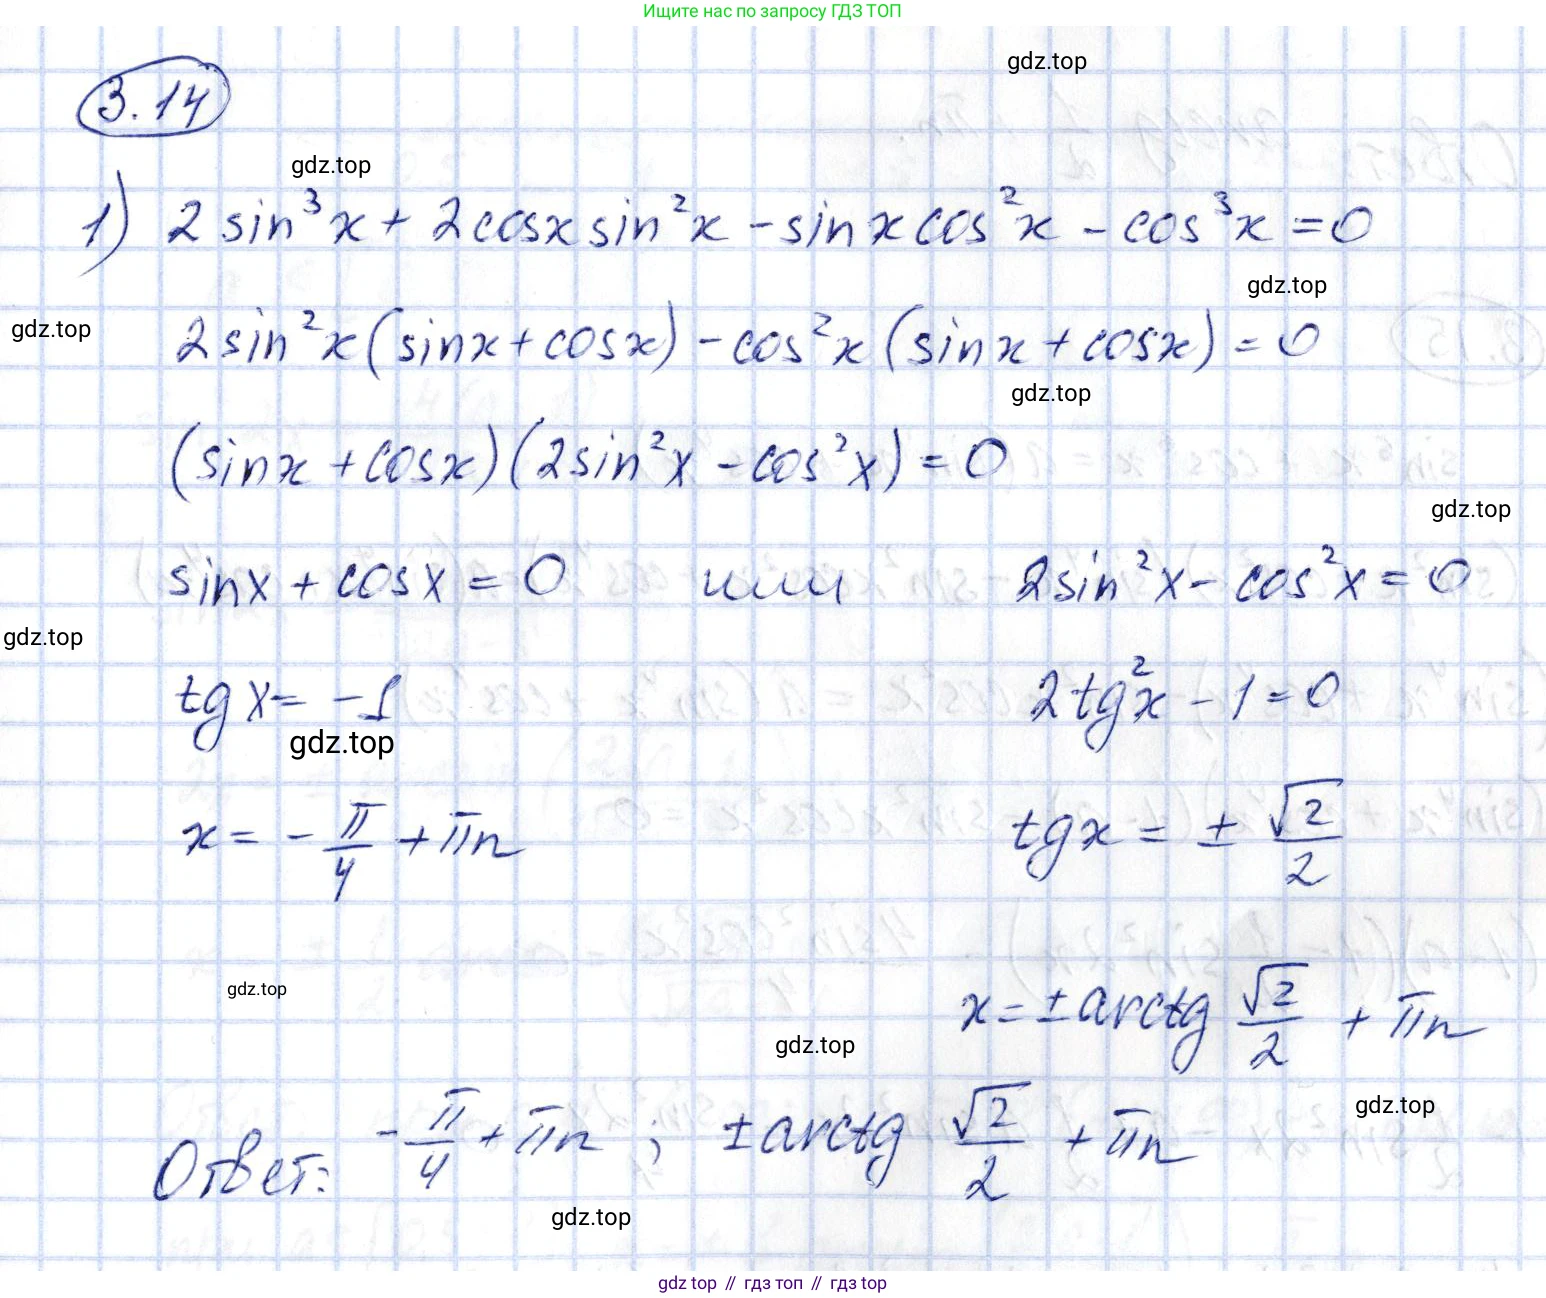 Ищите нас по запросу ГДЗ ТОП
gdz.top
3.14
gdz.top
1) 2 sin³x + 2cosx sin²x - sinx cos²x - cos³x = 0
gdz.top
gdz.top
2sin²x(sinx+cosx) - cos²x(sinx+cosx) = 0
gdz.top
(sinx+cosx)(2sin²x - cos²x) = 0
gdz.top
sinx + cosx = 0 или 2sin²x - cos²x = 0
gdz.top
tgx = -1 2tg²x - 1 = 0
gdz.top
x = -π/4 + πn tgx = ± √2/2
gdz.top
x = ± arctg √2/2 + πn
gdz.top
gdz.top
Ответ: -π/4 + πn ; ± arctg √2/2 + πn
gdz.top
gdz top // гдз топ // gdz top